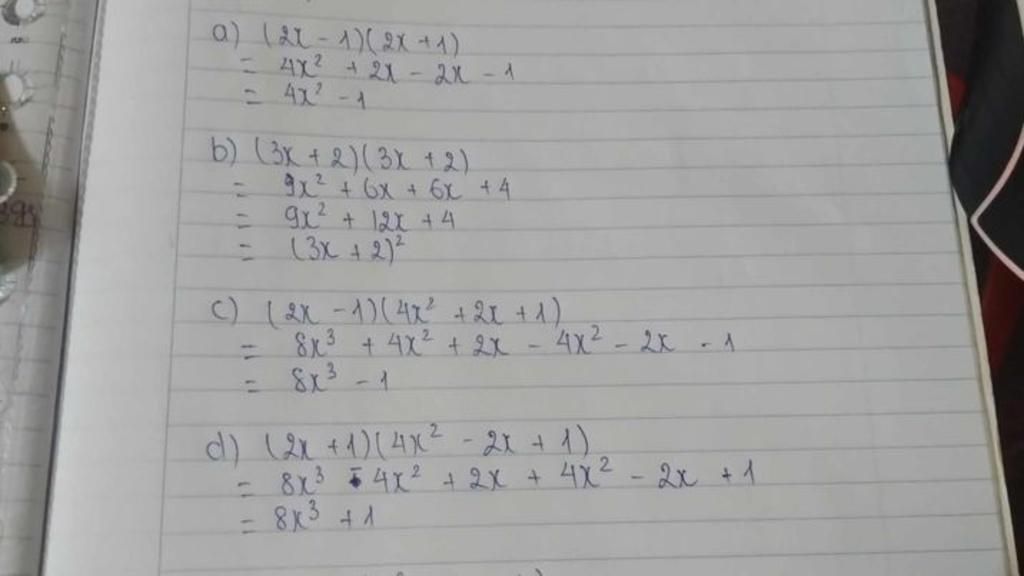 a) (2x - 1)(2x + 1)
= 4x² + 2x - 2x - 1
= 4x² - 1
b) (3x + 2)(3x + 2)
= 9x² + 6x + 6x + 4
= 9x² + 12x + 4
= (3x + 2)²
c) (2x - 1)(4x² + 2x + 1)
= 8x³ + 4x² + 2x - 4x² - 2x - 1
= 8x³ - 1
d) (2x + 1)(4x² - 2x + 1)
= 8x³ - 4x² + 2x + 4x² - 2x + 1
= 8x³ + 1